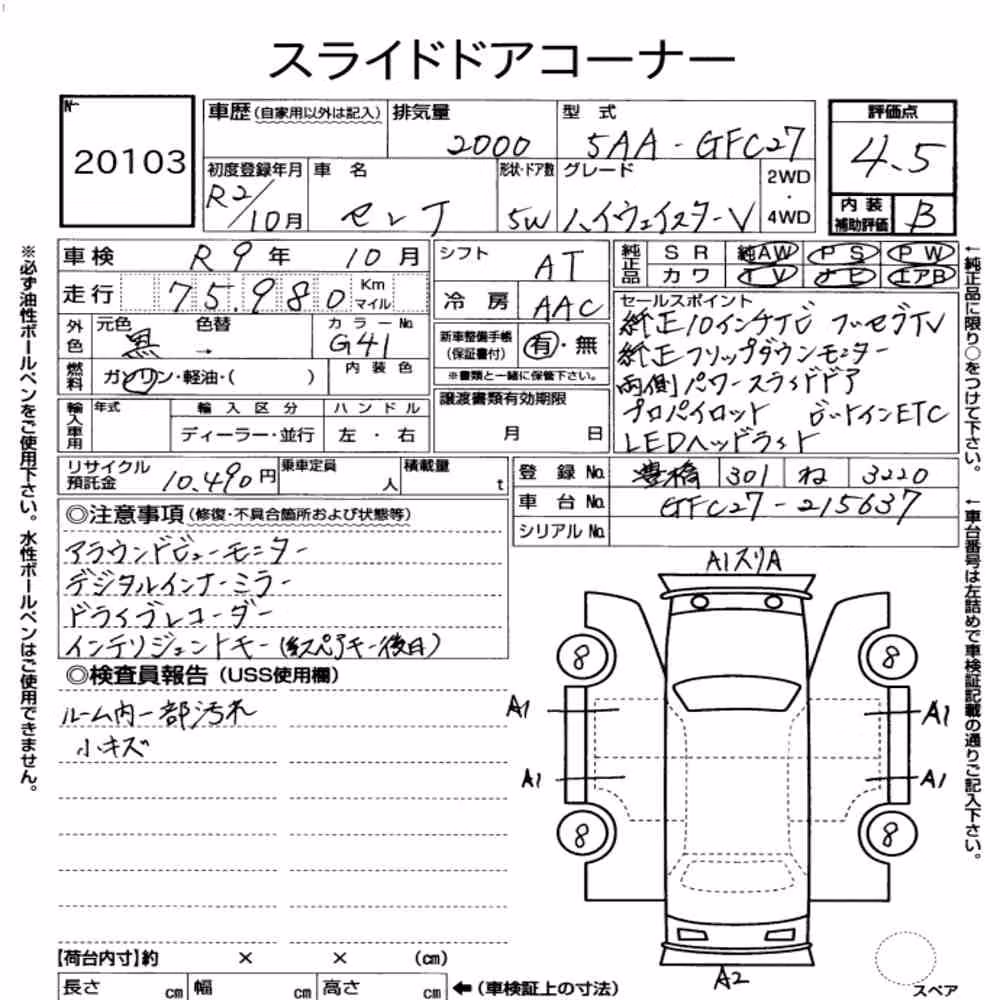 スライドドアコーナー
No.
20103
車歴(自家用以外は記入) 排気量 型 式
2000 5AA-GFC27
評価点
4.5
内装補助評価 B
初度登録年月 車 名 形状・ドア数 グレード 2WD・4WD
R2/10月 セレナ 5W ハイウェイスターV
※必ず油性ボールペンをご使用下さい。水性ボールペンはご使用できません。
車検 R9年 10月
走行 75.980 Km マイル
外色 元色 黒 色替 → カラーNo. G41
燃料 ガソリン・軽油・( ) 内装色
輸入車用 年式 輸入区分 ハンドル
ディーラー・並行 左・右
シフト AT
冷房 AAC
新車整備手帳(保証書付) 有・無
※書類と一緒に保管下さい。
譲渡書類有効期限
月 日
純正品 SR 純AW PS PW
カワ TV ナビ エアB
セールスポイント
純正10インチナビ フルセグTV
純正フリップダウンモニター
両側パワースライドドア
プロパイロット ビルトインETC
LEDヘッドライト
←純正品に限り○をつけて下さい。
リサイクル預託金 10.490円 乗車定員 人 積載量 t
登録No. 豊橋 301 ね 3220
車台No. GFC27-215637
シリアルNo.
←車台番号は左詰めで車検証記載の通りご記入下さい。
◎注意事項(修復・不具合箇所および状態等)
アラウンドビューモニター
デジタルインナーミラー
ドライブレコーダー
インテリジェントキー(後日)
◎検査員報告(USS使用欄)
ルーム内一部汚れ
小キズ
A1スリA
8 8
A1 A1
A1 A1
8 8
A2
【荷台内寸】約 × × (cm)
長さ cm 幅 cm 高さ cm ←(車検証上の寸法)
スペア